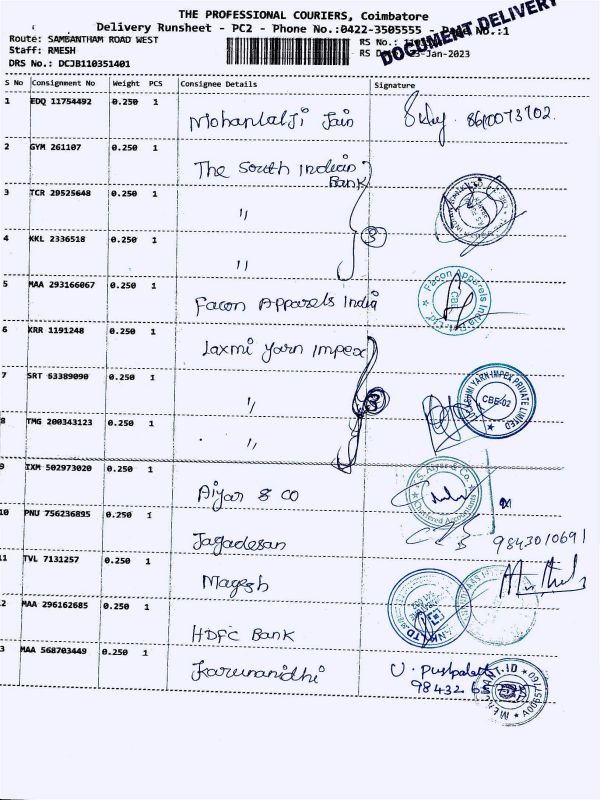 THE PROFESSIONAL COURIERS, Coimbatore
Delivery Runsheet - PC2 - Phone No.:0422-3505555 - Page No.:1
DOCUMENT DELIVERY
Route: SAMBANTHAM ROAD WEST
RS No.:
Staff: RMESH
RS Date: 23-Jan-2023
DRS No.: DCJB110351401
S No Consignment No Weight PCS Consignee Details Signature
1 EDQ 11754492 0.250 1 Mohanlalji Jain 8610073702
2 GYM 261107 0.250 1 The South Indian Bank
3 TCR 29525648 0.250 1 "
3
4 KKL 2336518 0.250 1 "
5 MAA 293166067 0.250 1 Facon Apparels India
Facon Apparels India Pvt. Ltd. CBE
6 KRR 1191248 0.250 1 Laxmi Yarn Impex
7 SRT 63389090 0.250 1 "
3
LAXMI YARN IMPEX PRIVATE LIMITED CBE-02
8 TMG 200343123 0.250 1 "
9 IXM 502973020 0.250 1 Aiyar & Co
S. Aiyar & Co. Chartered Accountants
10 PNU 756236895 0.250 1 Jagadesan 9843010691
11 TVL 7131257 0.250 1 Magesh
2 MAA 296162685 0.250 1 HDFC Bank
BANK LTD
3 MAA 568703449 0.250 1 Karunanidhi
98432 65